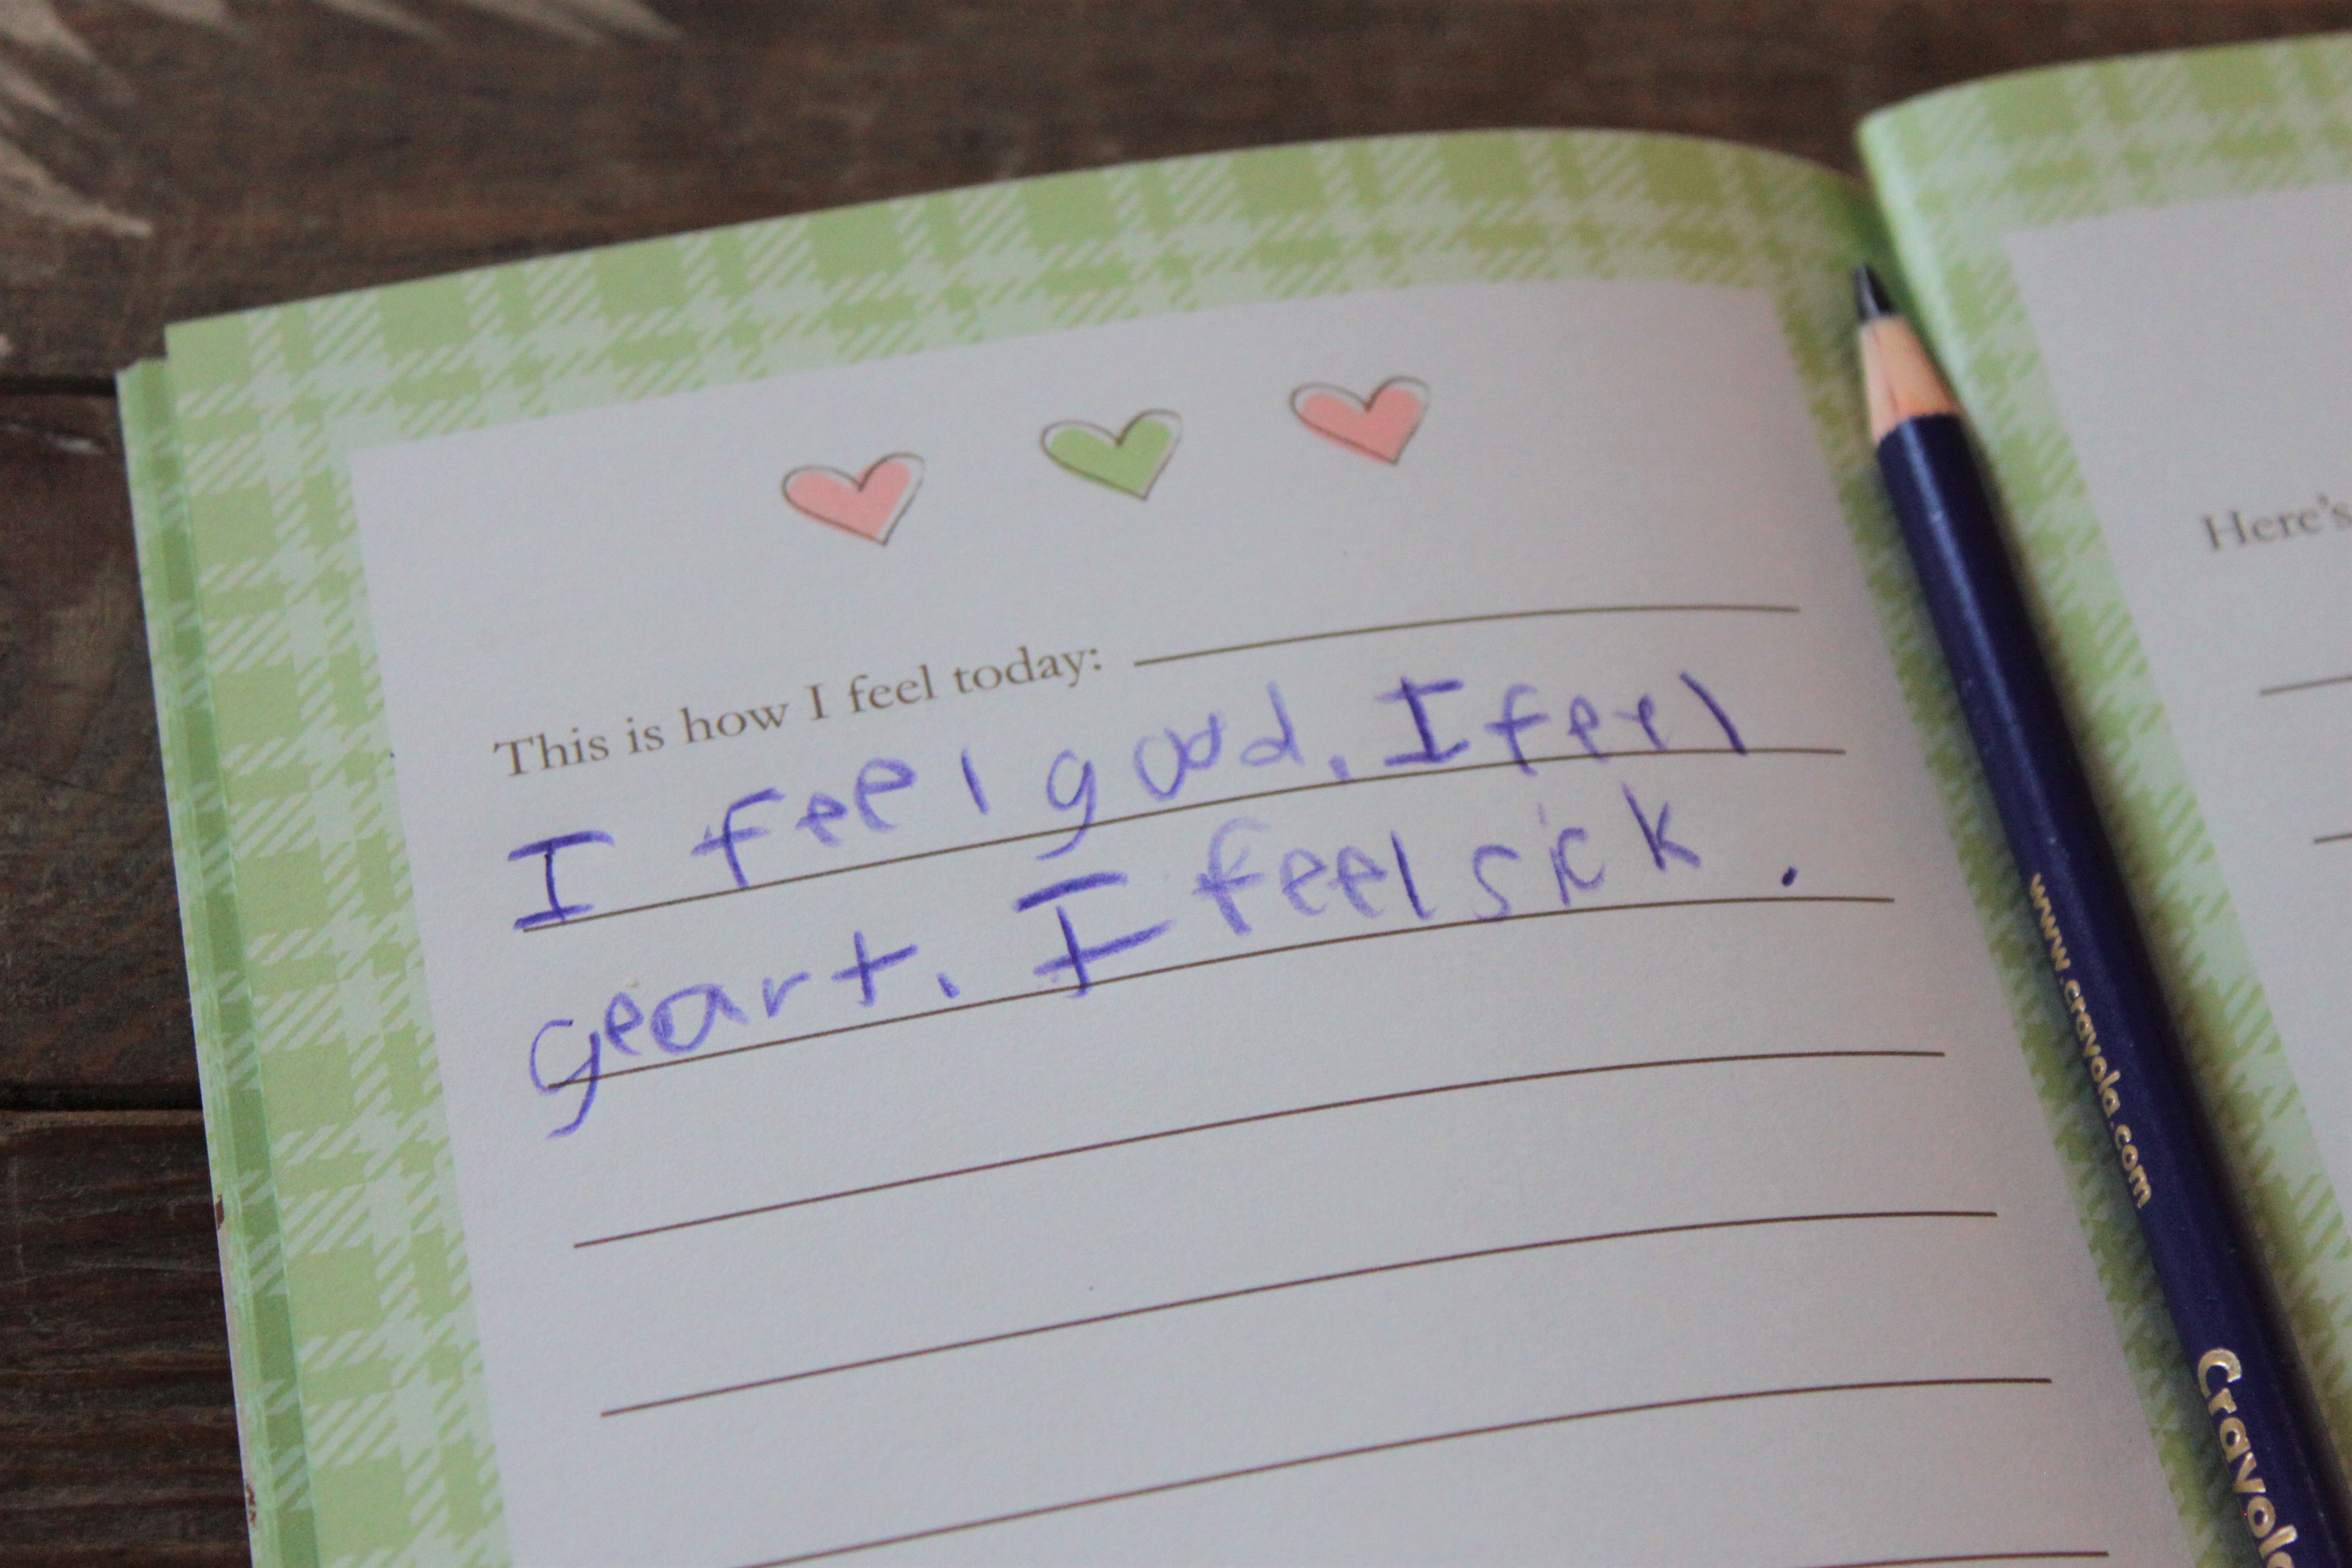 This is how I feel today:
I feel good. I feel
geart. I feel sick.
Here's
www.crayola.com
Crayol